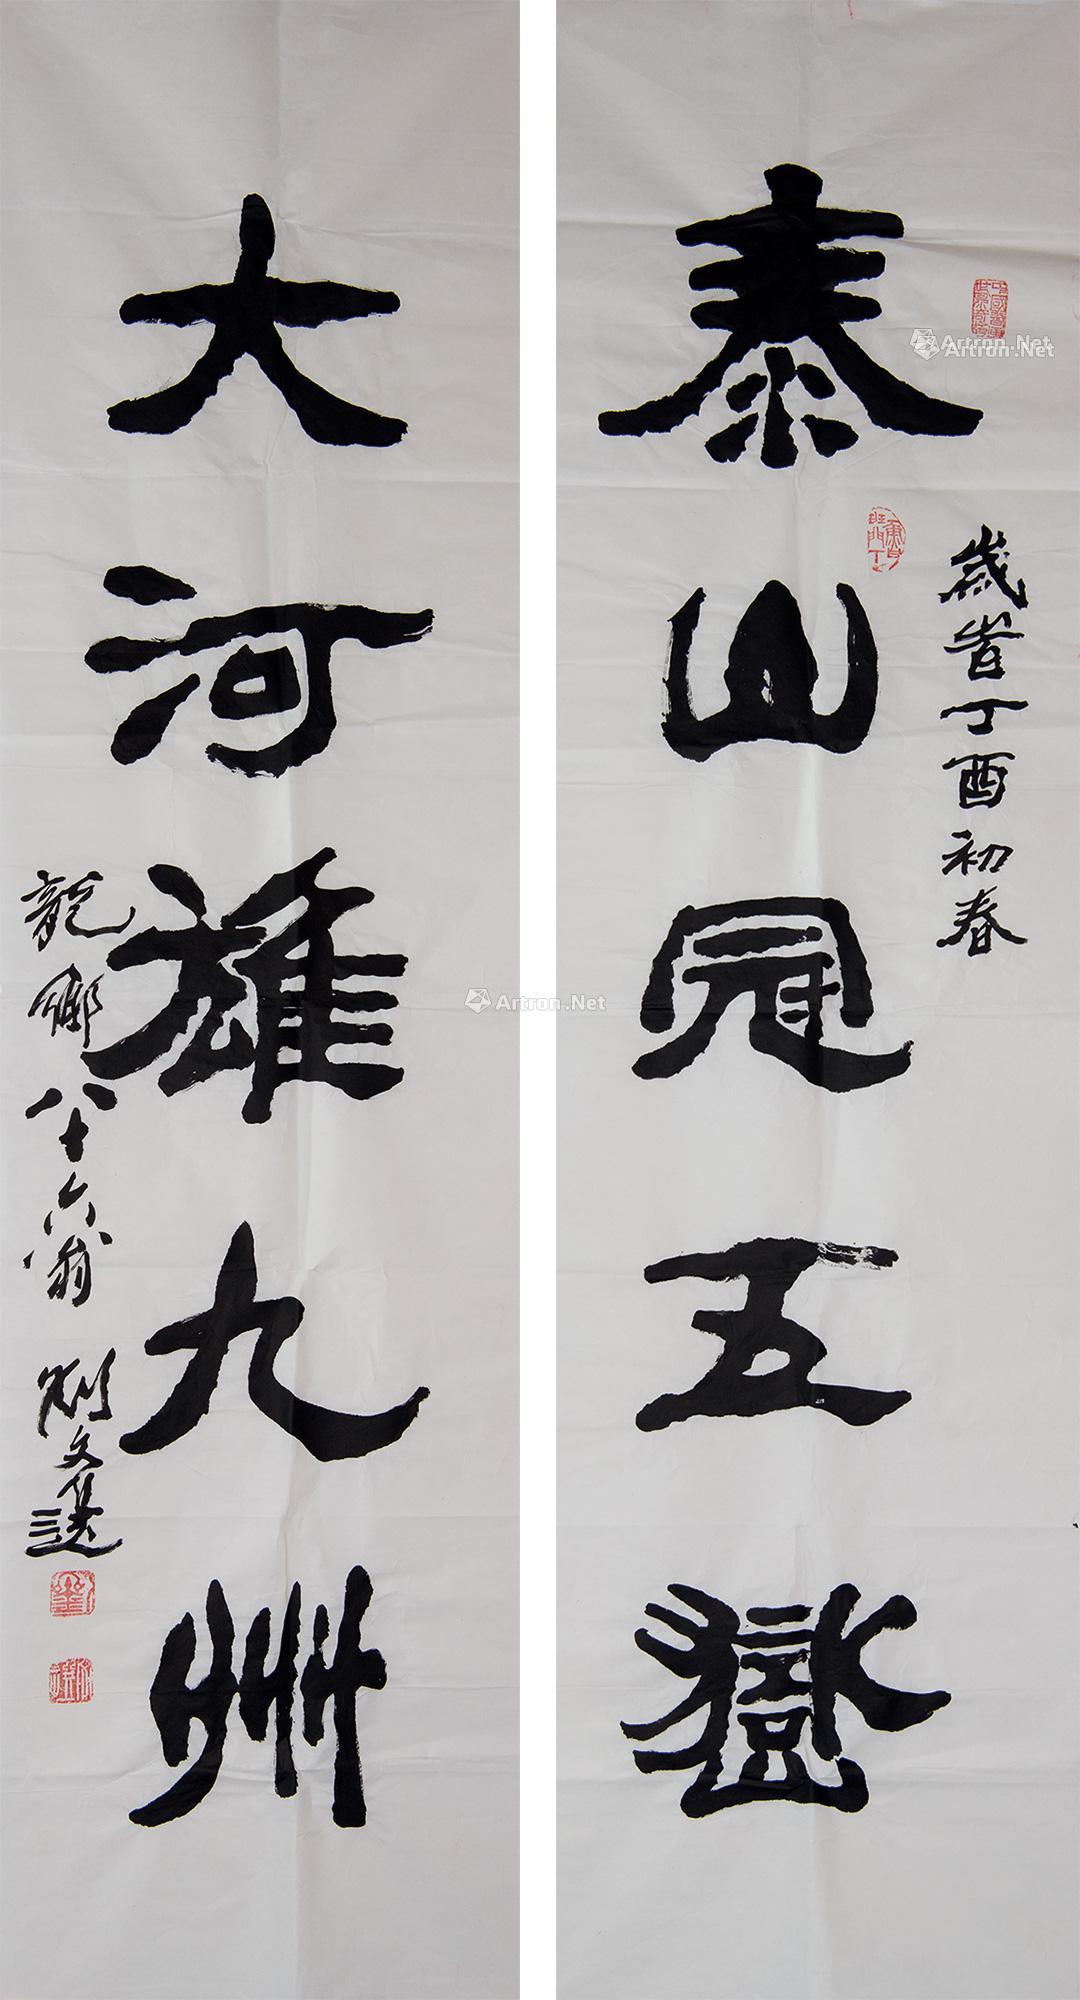 泰山冠五嶽
歲首丁酉初春
大河雄九州
龍鄉八十六翁 劉文選
Artron.Net
Artron.Net
Artron.Net